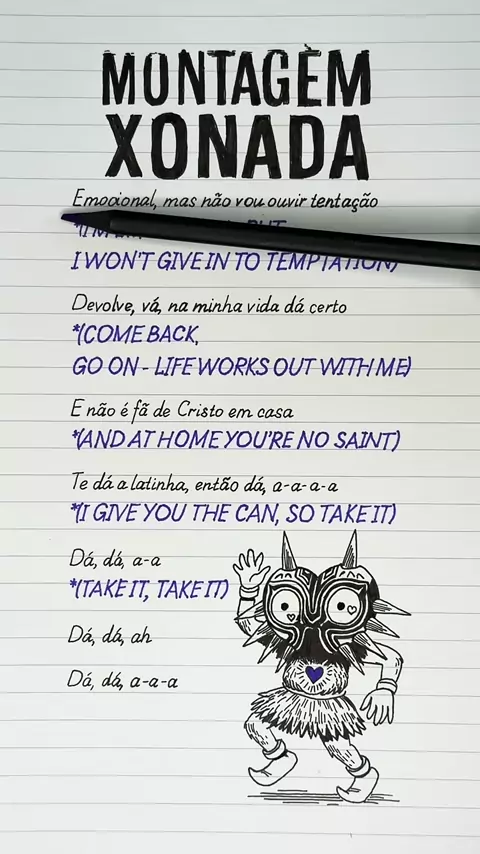 MONTAGÈM
XONADA
Emocional, mas não vou ouvir tentação
I WON'T GIVE IN TO TEMPTATION)
Devolve, vá, na minha vida dá certo
*(COME BACK,
GO ON - LIFE WORKS OUT WITH ME)
E não é fã de Cristo em casa
*(AND AT HOME YOU'RE NO SAINT)
Te dá a latinha, então dá, a-a-a-a
*(I GIVE YOU THE CAN, SO TAKE IT)
Dá, dá, a-a
*(TAKE IT, TAKE IT)
Dá, dá, ah
Dá, dá, a-a-a